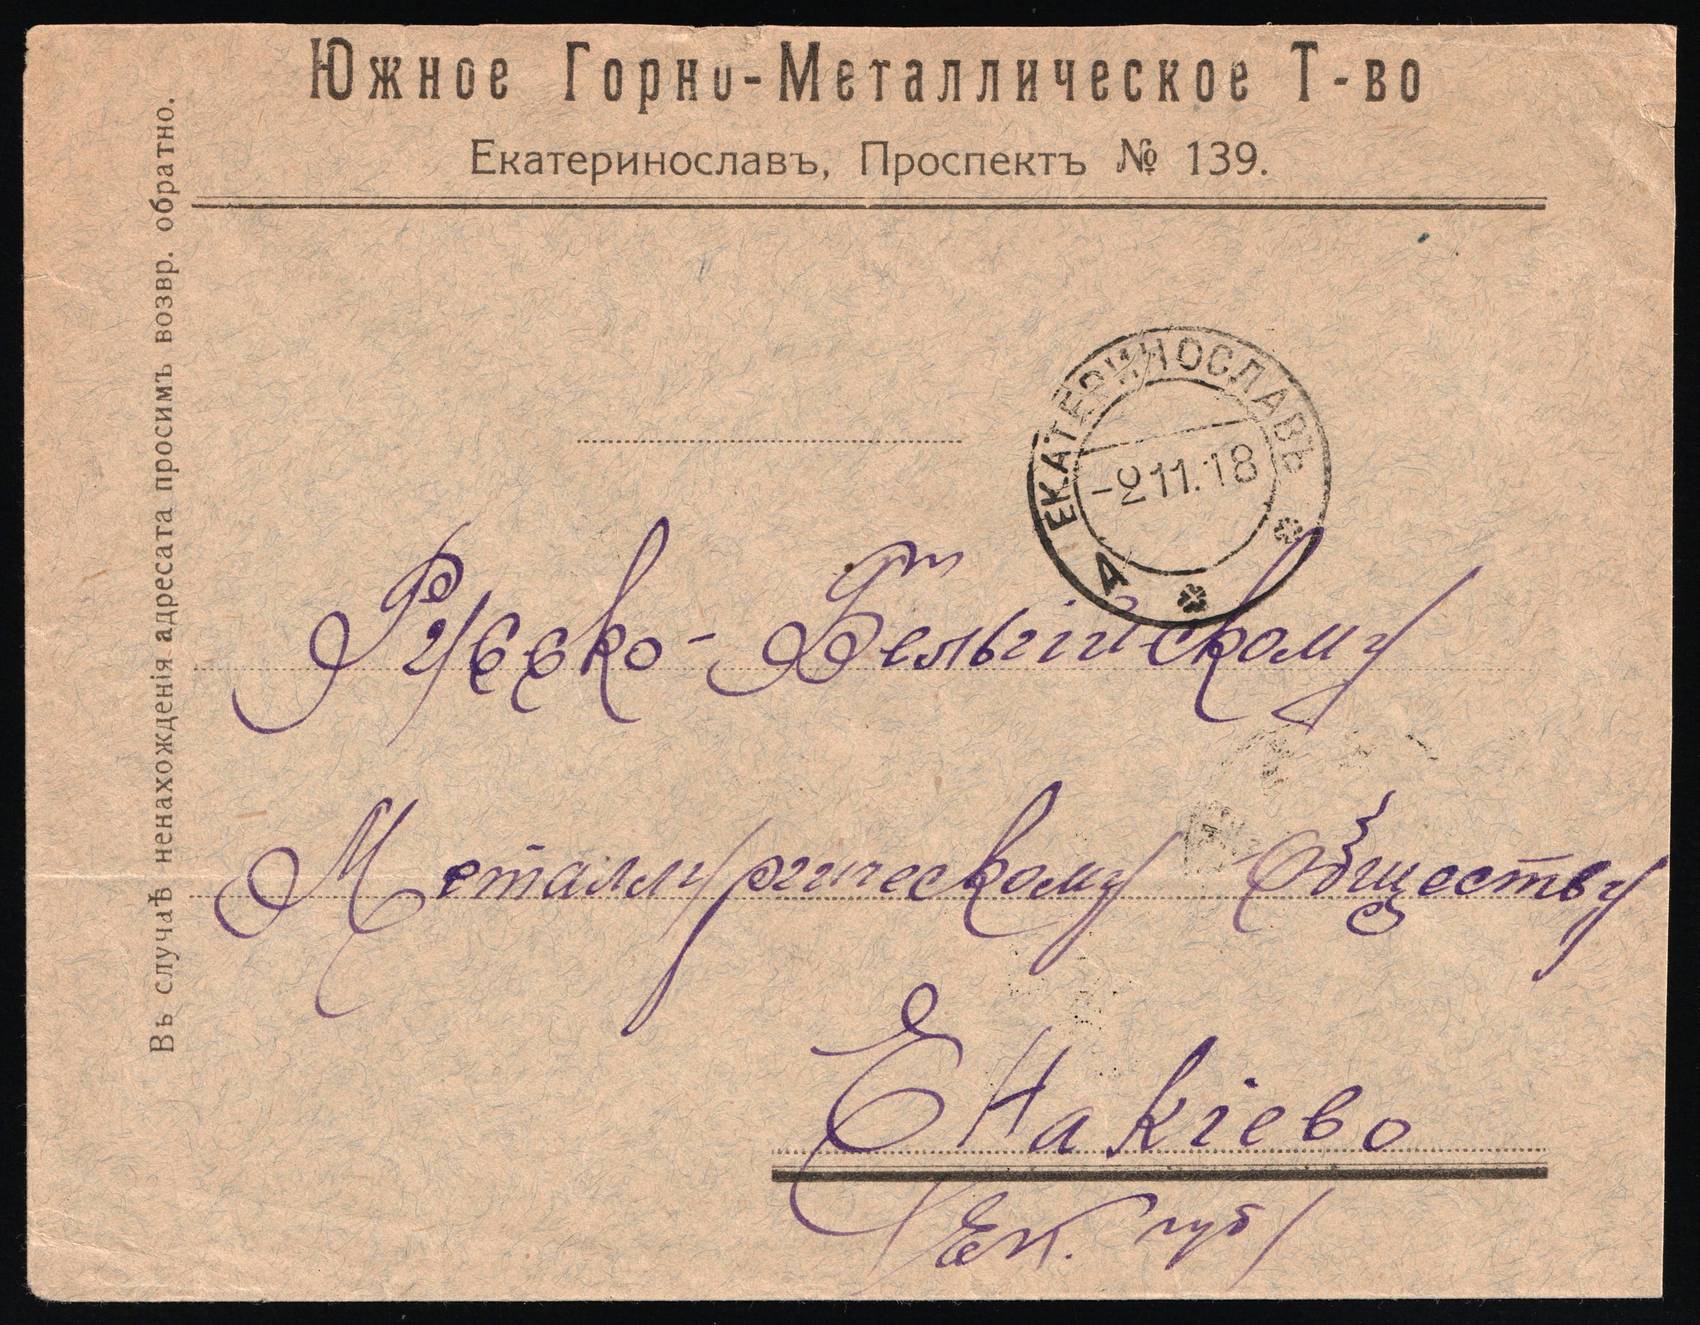 Южное Горно-Металлическое Т-во
Екатеринославъ, Проспектъ № 139.
Въ случаѣ ненахожденія адресата просимъ возвр. обратно.
ЕКАТЕРИНОСЛАВЪ
-2.11.18
А
Русско-Бельгійскому
Металлургическому Обществу
Енакіево
/Ек. губ/